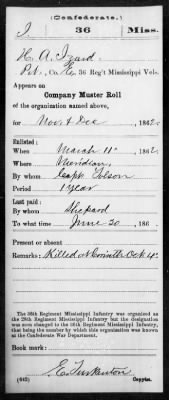 (Confederate.)
I 36 Miss.
H. A. Izard
Pvt., Co. 36 Reg't Mississippi Vols.
Appears on
Company Muster Roll
of the organization named above,
for Nov. & Dec, 1862.
Enlisted:
When March 11, 1862.
Where Meridian
By whom Capt. Tolson
Period 1 year
Last paid:
By whom Shepard
To what time June 30, 186 .
Present or absent
Remarks: Killed at Corinth Oct 4.
The 36th Regiment Mississippi Infantry was organized as
the 28th Regiment Mississippi Infantry but the designation
was soon changed to the 36th Regiment Mississippi Infantry,
that being the number by which this organization was known
at the Confederate War Department.
Book mark:
E. Turkenton
(642) Copyist.